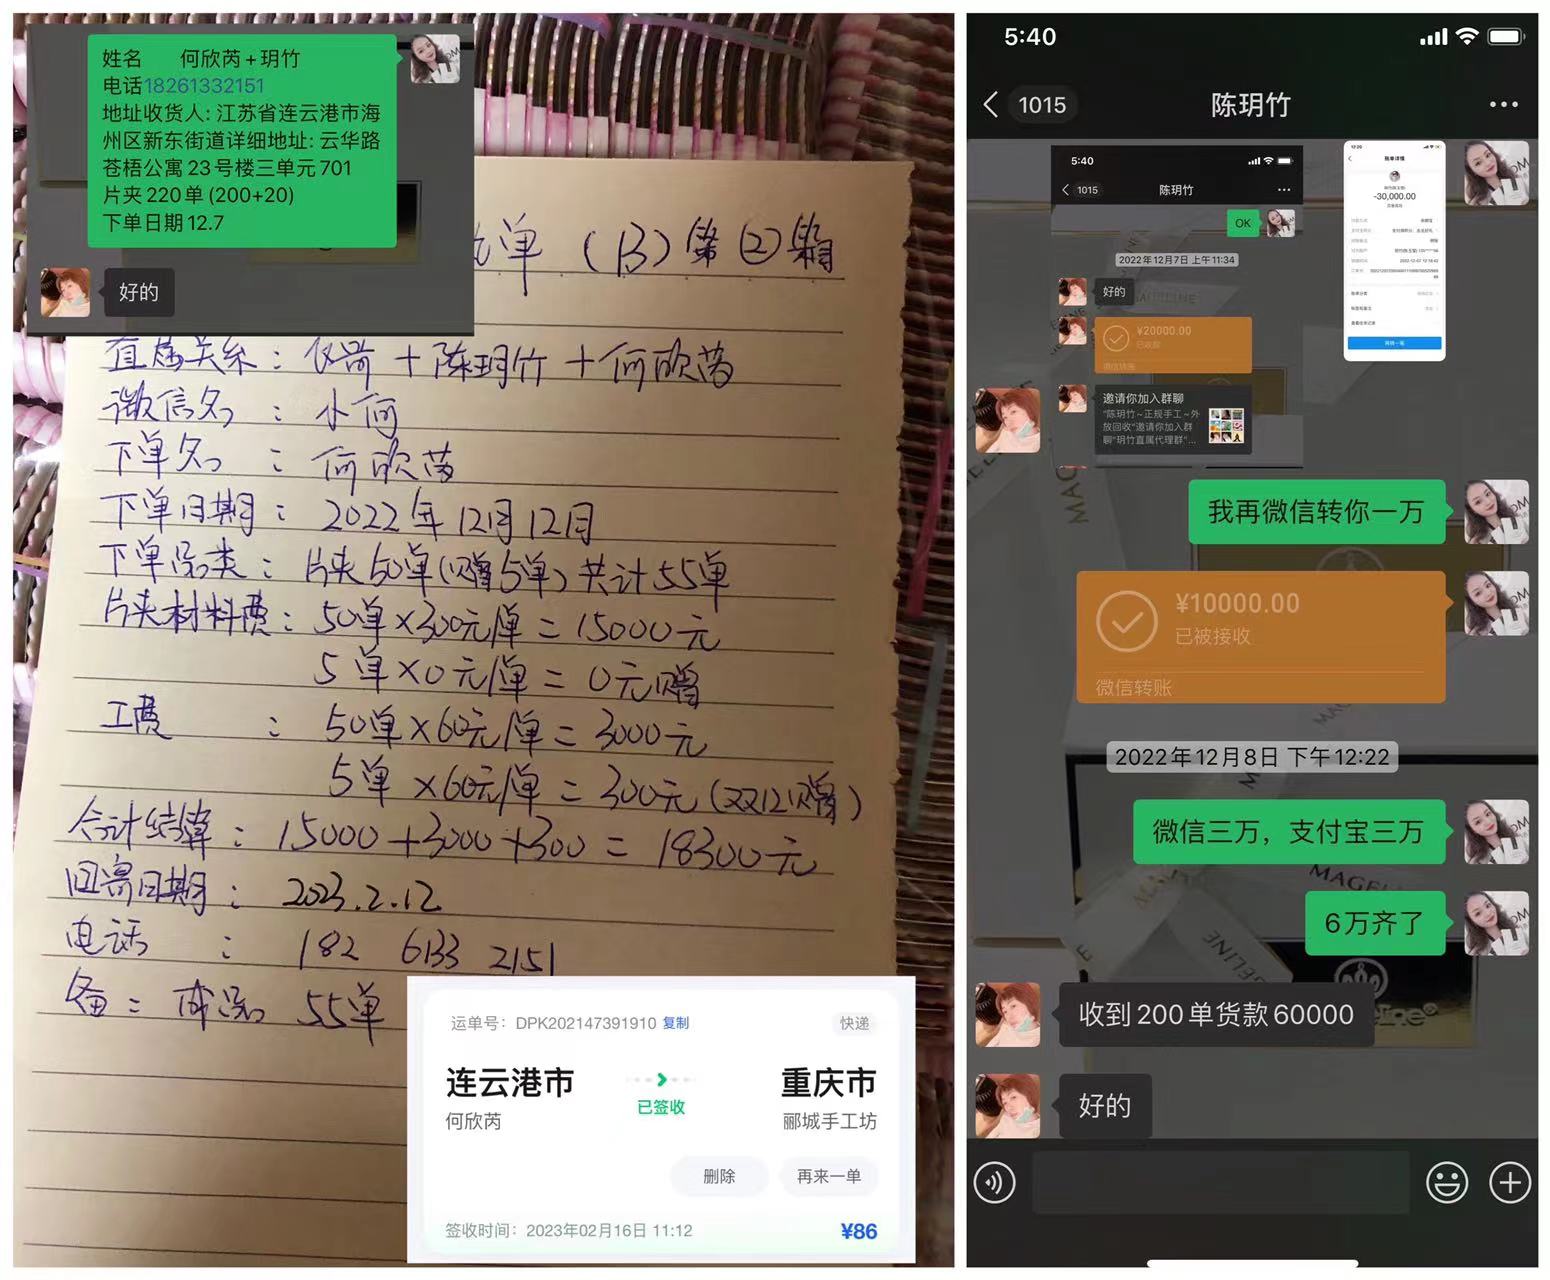 姓名 何欣芮+玥竹
电话18261332151
地址收货人: 江苏省连云港市海
州区新东街道详细地址: 云华路
苍梧公寓 23 号楼三单元 701
片夹 220 单 (200+20)
下单日期 12.7
好的
单 (B) 第②期
直属关系: 陈玥竹 + 何欣芮
微信名: 小何
下单名: 何欣芮
下单日期: 2022年12月12日
下单品类: 片夹50单(赠5单)共计55单
片夹材料费: 50单×300元/单=15000元
5单×0元/单=0元赠
工费: 50单×60元/单=3000元
5单×60元/单=300元(双12赠)
合计结算: 15000+3000+300=18300元
回寄日期: 2023.2.12
电话: 182 6133 2151
备: 成品 55单
运单号: DPK202147391910 复制
快递
连云港市
重庆市
已签收
何欣芮
郦城手工坊
删除
再来一单
签收时间: 2023年02月16日 11:12
¥86
5:40
1015
陈玥竹
5:40
1015
陈玥竹
OK
2022年12月7日 上午11:34
好的
¥20000.00
已收款
微信转账
邀请你加入群聊
"陈玥竹~正规手工~外
放回收"邀请你加入群
聊"玥竹直属代理群"...
账单详情
-30,000.00
我再微信转你一万
¥10000.00
已被接收
微信转账
2022年12月8日 下午12:22
微信三万，支付宝三万
6万齐了
收到200单货款60000
好的
MAGELINE